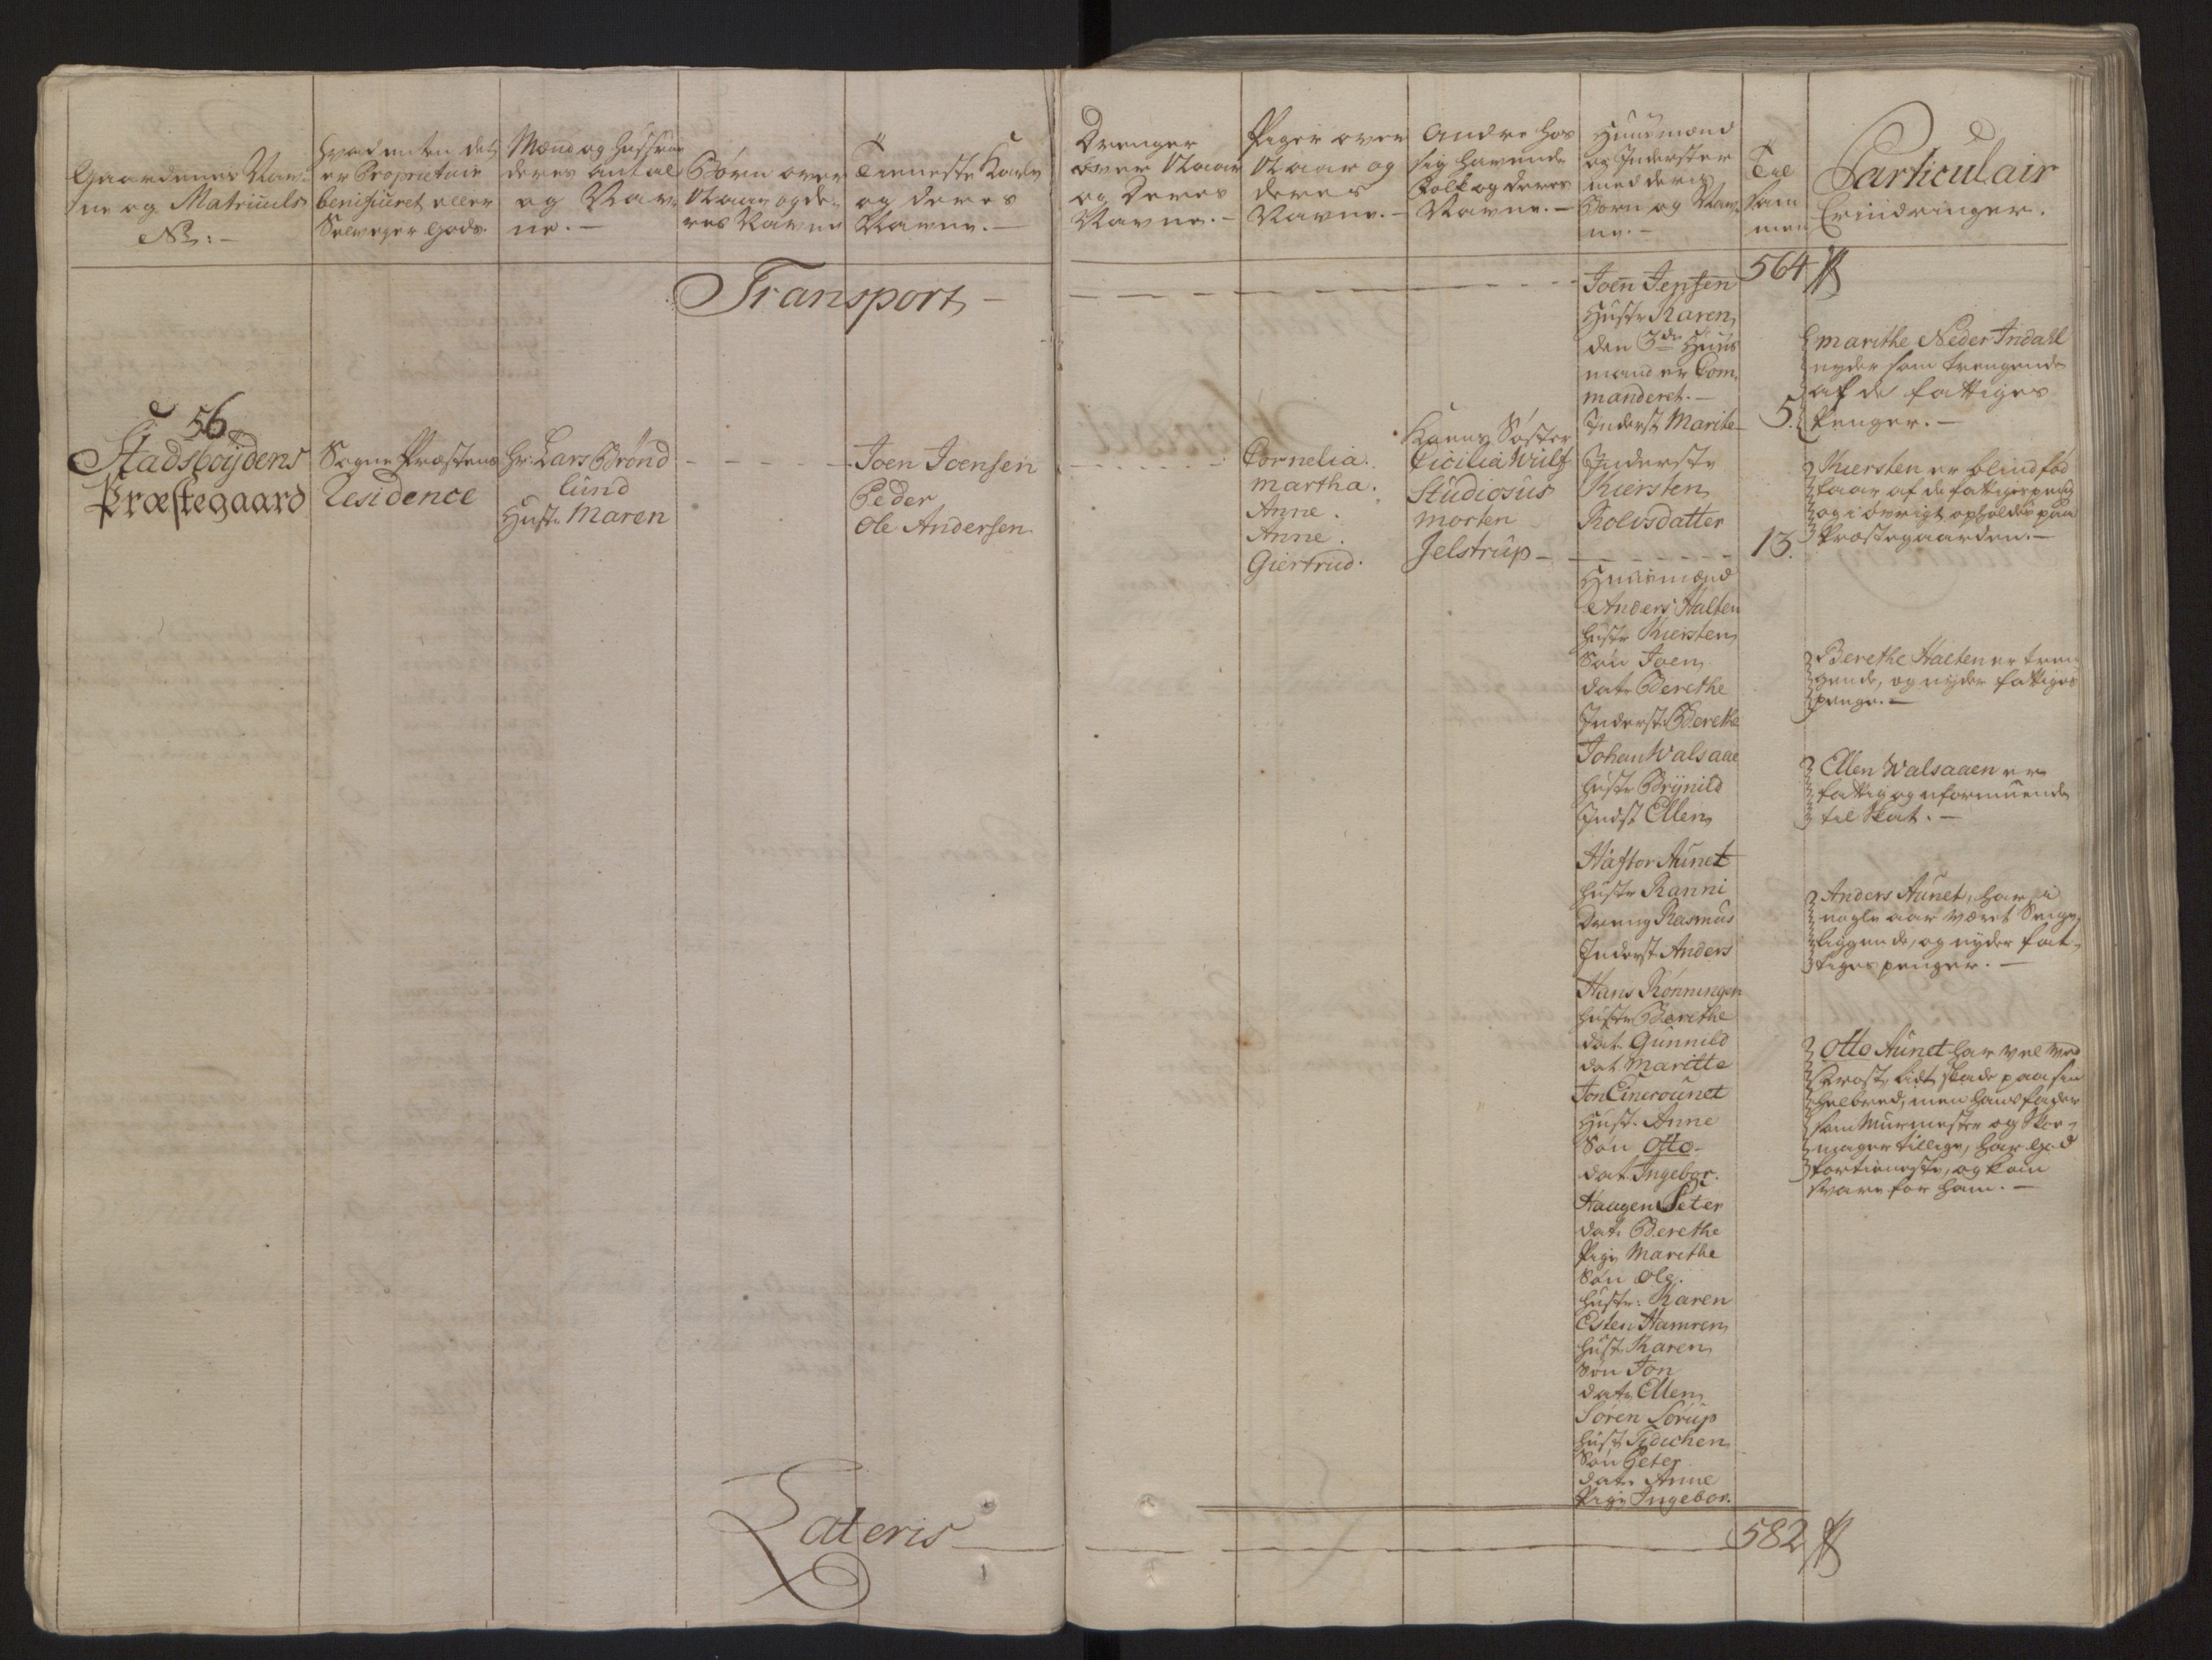 Gaardenes Nav-
ne og Matriculs
No: -
hvad enten det
er Proprietair
benificeret eller
Selveyer Gods.
Mænd og Hustruer
deres antal
og Nav-
ne. -
Børn over
aar og de-
res Navne
Tieneste Karle
og deres
Navne. -
Drenger
over aar
og Deres
Navne. -
Piger over
aar og
deres
Navne. -
Andre hos
sig havende
Folk og deres
Navne. -
Huusmænd
og Inderster
med deris
Børn og Nav-
ne. -
Til
sam
men
Particulair
Erindringer.
Transport -
564
Joen Jensen
Hustr Karen
den 3de Huus
mand er Com-
manderet. -
Inderst Marite
5.
marithe Neder Indahl
nyder som trengende
af de fattiges
Penger. -
56.
Stadsbøÿdens
Præstegaard
Sogne Præstens
Residence
Hr. Lars Brønd
lund
Hust. Maren
Joen Joensen
Peder
Ole Andersen
Cornelia.
martha.
Anne.
Anne.
Giertrud.
Konens Søster
Cicilia Wulf
Studiosus
morten
Jelstrup -
Inderste
Kiersten
Rolvsdatter
13.
Kiersten er blind fød
faar af de fattiges peng
og i øvrigt opholdes paa
Præstegaarden. -
Huusmænd
Anders Halten
Hustr Kiersten
Søn Joen
dat. Berethe
Inderst Berethe
Berethe Halten er tren
gende, og nyder fattiges
penge. -
Johan Walsaae
Hustr Brÿnild
Indst. Ellen
Ellen Walsaaen er
fattig og uformuende
til Skat. -
Haftor Aunet
Hustr Ranni
Dreng Rasmus
Inderst Anders
Anders Aunet, har i
nogle aar været Senge
liggende, og nyder fat-
tiges penger. -
Hans Rønningen
Hustr Berethe
dat. Gunnild
dat. Maritte
Jon Einerounet
Hust. Anne
Søn Otto.
dat. Ingebor.
Otto Aunet har vel ved
Frost, lidt skade paa sin
Helbred, men hans fader
som Murmester og Skoe-
mager tillige, har god
fortieneste, og kan
svare for ham. -
Haagen Seter
dat. Berethe
Pige Marethe
Søn Ole.
Hustr. Karen
Esten Hamren
Hust. Karen
Søn Jon
dat. Ellen
Søren Sørup
Hust. Fidichen
Søn Peter
dat. Anne
Pige Ingebor.
Lateris
582